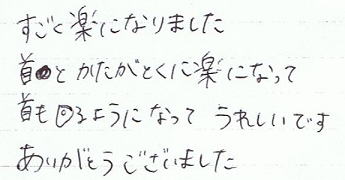 すごく楽になりました
首とかたがとくに楽になって
首も回るようになって うれしいです
ありがとうございました